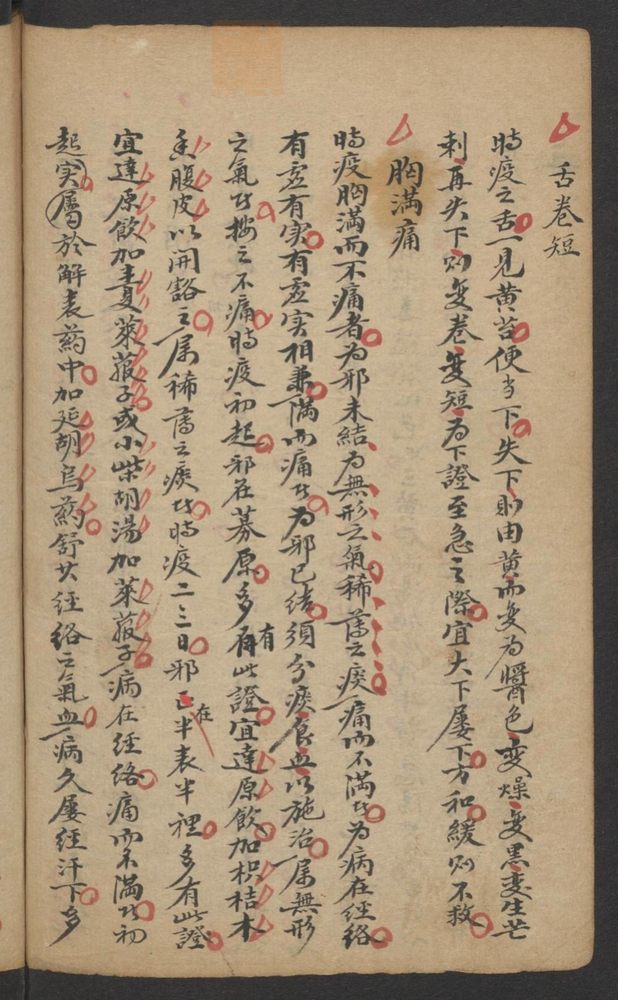 舌卷短
時疫之舌一見黃苔便當下失下則由黃而变为醬色变燥变黑变生芒
刺再失下则变卷变短为下證至急之際宜大下屢下方和緩则不救
胸满痛
時疫胸满而不痛者为邪未結为無形之氣稀薄之痰痛而不满者为病在經絡
有虛有实有虛实相兼满而痛者为邪已结須分痰食血以施治属無形
之氣者按之不痛時疫初起邪在募原多有此證宜達原飲加枳桔木
香腹皮以開豁之属稀薄之痰者時疫二三日邪在半表半裡多有此證
宜達原飲加半夏萊菔子或小柴胡湯加萊菔子病在经絡痛而不满者初
起实属於解表藥中加延胡烏藥舒其经絡之氣血病久屢经汗下多